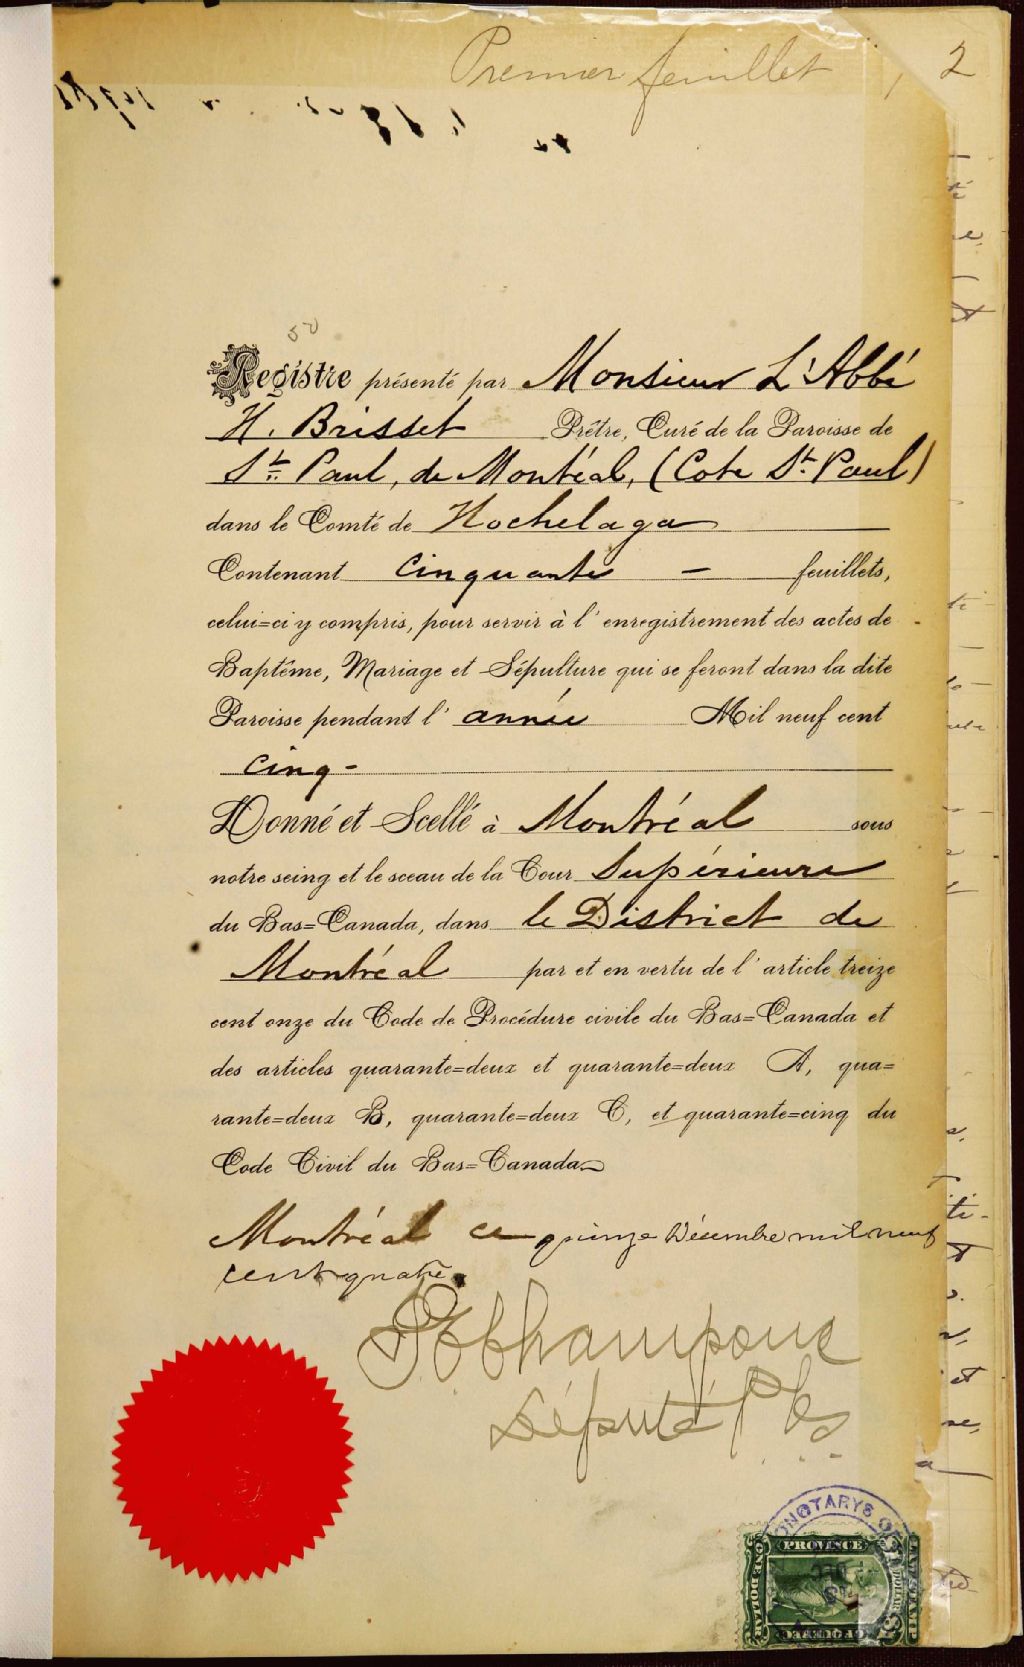 Premier feuillet
2
50
Registre présenté par Monsieur L'Abbé
H. Brisset Prêtre, Curé de la Paroisse de
St. Paul, de Montréal, (Cote St. Paul)
dans le Comté de Hochelaga
Contenant cinquante — feuillets,
celui=ci y compris, pour servir à l'enregistrement des actes de
Baptême, Mariage et Sépulture qui se feront dans la dite
Paroisse pendant l'année Mil neuf cent
cinq -
Donné et Scellé à Montréal sous
notre seing et le sceau de la Cour Supérieure
du Bas=Canada, dans le District de
Montréal par et en vertu de l'article treize
cent onze du Code de Procédure civile du Bas=Canada et
des articles quarante=deux et quarante=deux A, qua=
rante=deux B, quarante=deux C, et quarante=cinq du
Code Civil du Bas=Canada
Montréal ce quinze Décembre mil neuf
cent quatre.
Député P
ONOTARYS O
PROVINCE
ONE DOLLAR
LAW STAMP
OF QUEBEC
$1